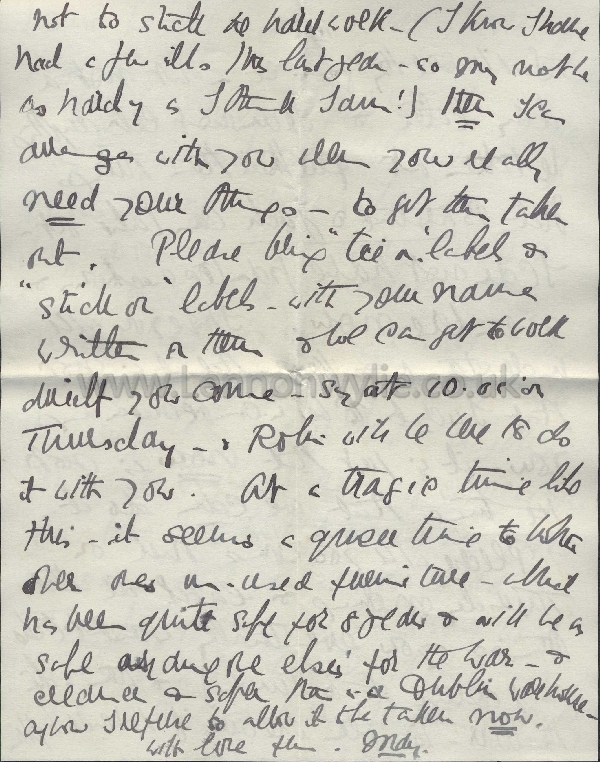 not to stick to hard work - (I know I have
had a few ills this last year - so may not be
as hardy as I think I am!) then I can
arrange with you when you really
need your things - to get them taken
out. Please bring "tie on" labels &
"stick on" labels - with your name
written on them & we can get to work
directly you come - say at 10. oc on
Thursday - & Robin will be here to do
it with you. At a tragic time like
this - it seems a queer time to bother
over ones un-used furniture - which
has been quite safe for 8 years & will be as
safe as anyone else's for the war - &
cleaner & safer than in a Dublin warehouse -
anyhow I refuse to allow it to be taken now.
with love from
www.lennonwylie.co.uk